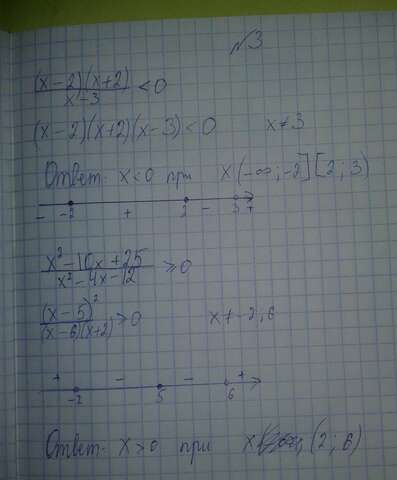 №3
(x-2)(x+2)/x-3 <0
(x-2)(x+2)(x-3)<0 x≠3
Ответ. x<0 при x(-∞;-2][2;3)
- -2 + 2 - 3 +
x²-10x+25/x²-4x-12 ≥0
(x-5)²/(x-6)(x+2) >0 x≠-2,6
+ -2 - 5 - 6 +
Ответ. x>0 при x (2;6)